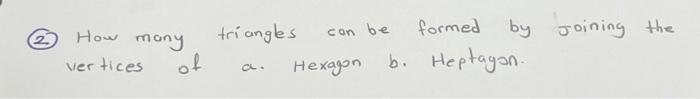 ② How many triangles can be formed by joining the
vertices of a. Hexagon b. Heptagon.